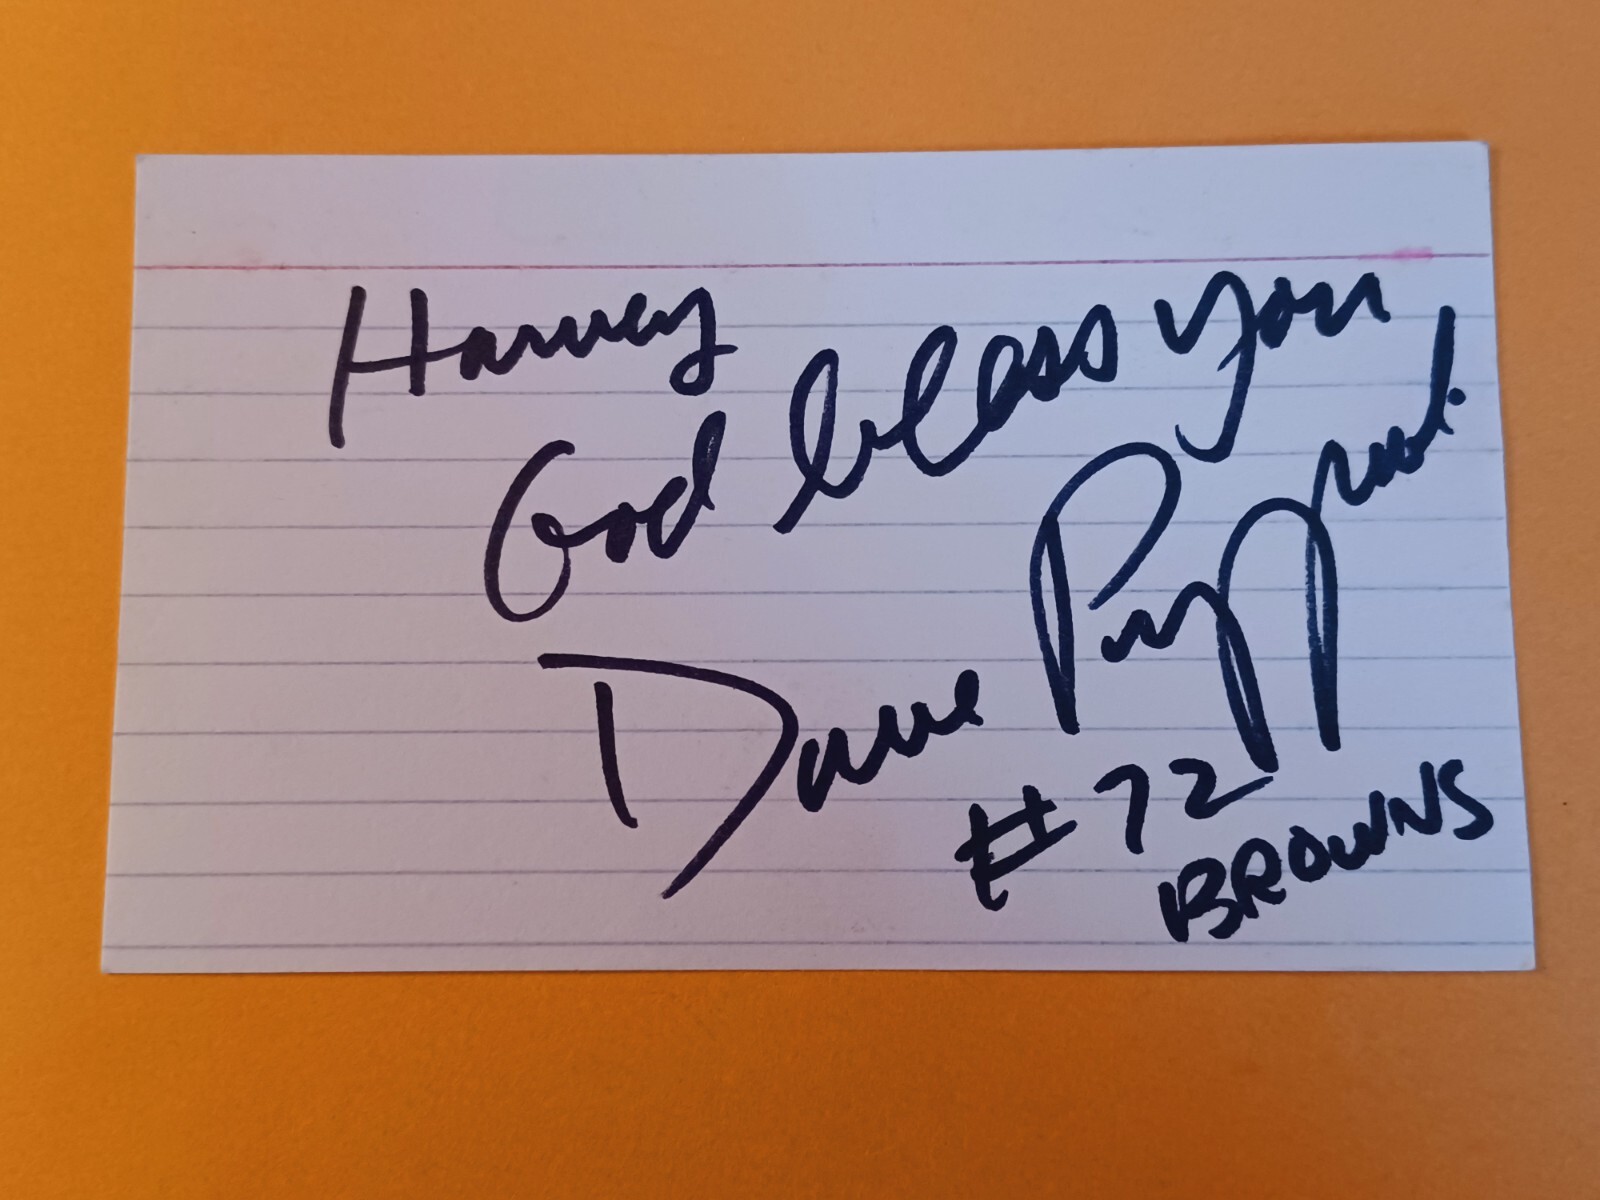 Harvey
God bless you
Dave Puzzuoli
#72
BROWNS